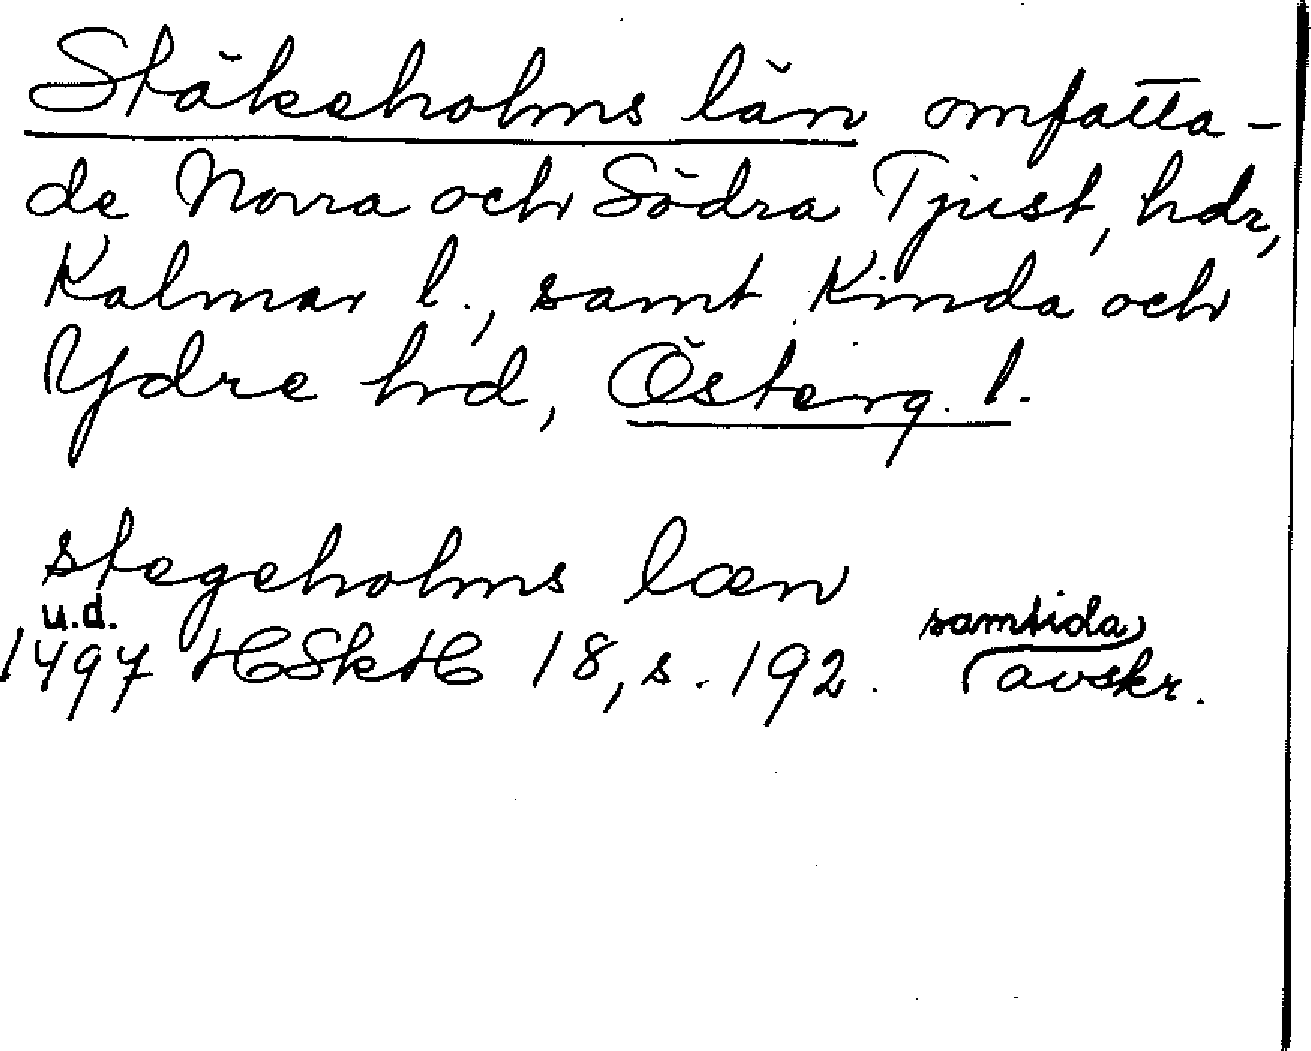 Stäkeholms län omfatta-
de Norra och Södra Tjust, hdr,
Kalmar l., samt Kinda och
Ydre hd, Österg. l.
stegeholms læn
u.d.
1497 HSkH 18, s. 192. samtida
avskr.